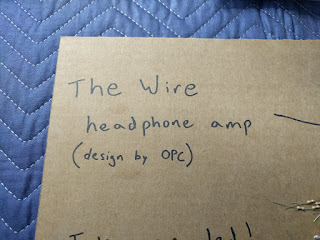 The Wire
headphone amp
(design by OPC)